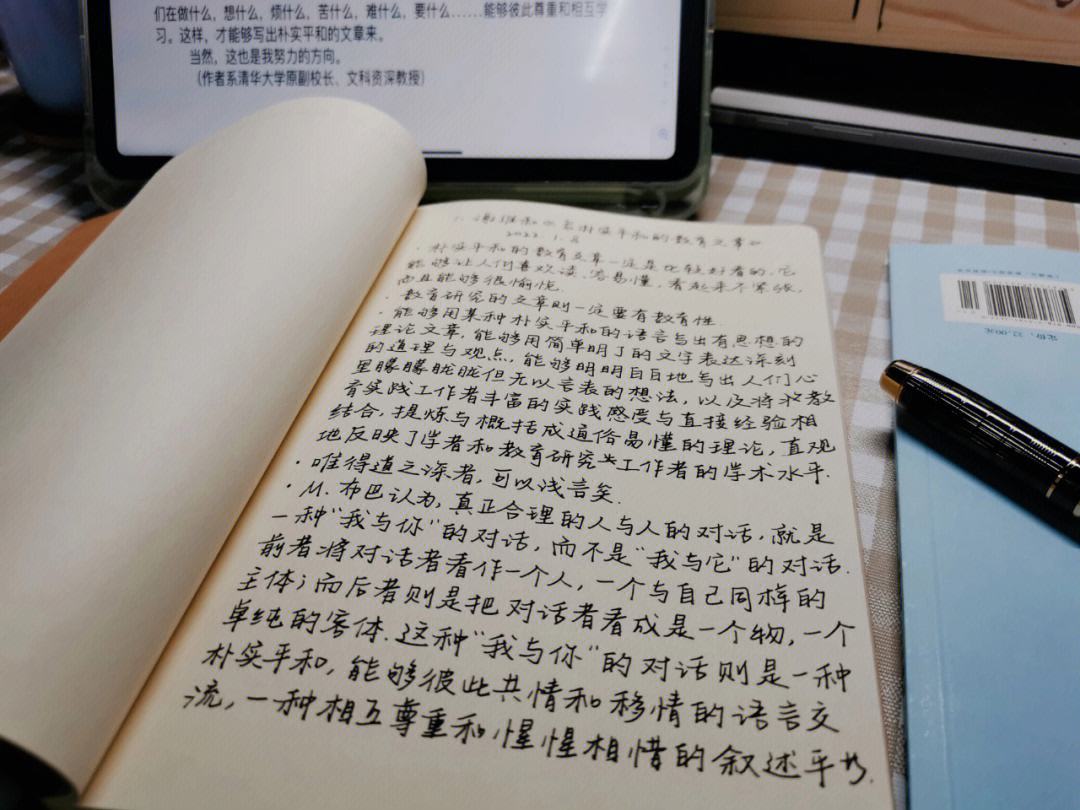 们在做什么，想什么，烦什么，苦什么，难什么，要什么……能够彼此尊重和相互学
习。这样，才能够写出朴实平和的文章来。
当然，这也是我努力的方向。
（作者系清华大学原副校长、文科资深教授）
1. 谢维和《写朴实平和的教育文章》
2022.1.8
·朴实平和的教育文章一定是比较好看的，它
能够让人们喜欢读、容易懂，看起来不紧张，
而且能够很愉悦.
·教育研究的文章则一定要有教育性.
·能够用某种朴实平和的语言写出有思想的
理论文章，能够用简单明了的文字表达深刻
的道理与观点，能够明明白白地写出人们心
里朦朦胧胧但无以言表的想法，以及将把教
育实践工作者丰富的实践感受与直接经验相
结合，提炼与概括成通俗易懂的理论，直观
地反映了学者和教育研究工作者的学术水平.
·唯得道之深者，可以浅言矣.
·M.布巴认为，真正合理的人与人的对话，就是
一种“我与你”的对话，而不是“我与它”的对话.
前者将对话者看作一个人，一个与自己同样的
主体；而后者则是把对话者看成是一个物，一个
单纯的客体.这种“我与你”的对话则是一种
朴实平和，能够彼此共情和移情的语言交
流，一种相互尊重和惺惺相惜的叙述平台.
定价：32.00元